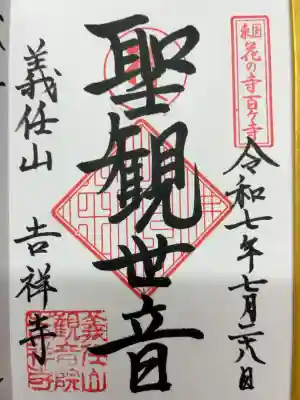 東国花の寺百ヶ寺
令和七年七月二十八日
聖観世音
義任山 吉祥寺
義任山
観音院
吉祥寺